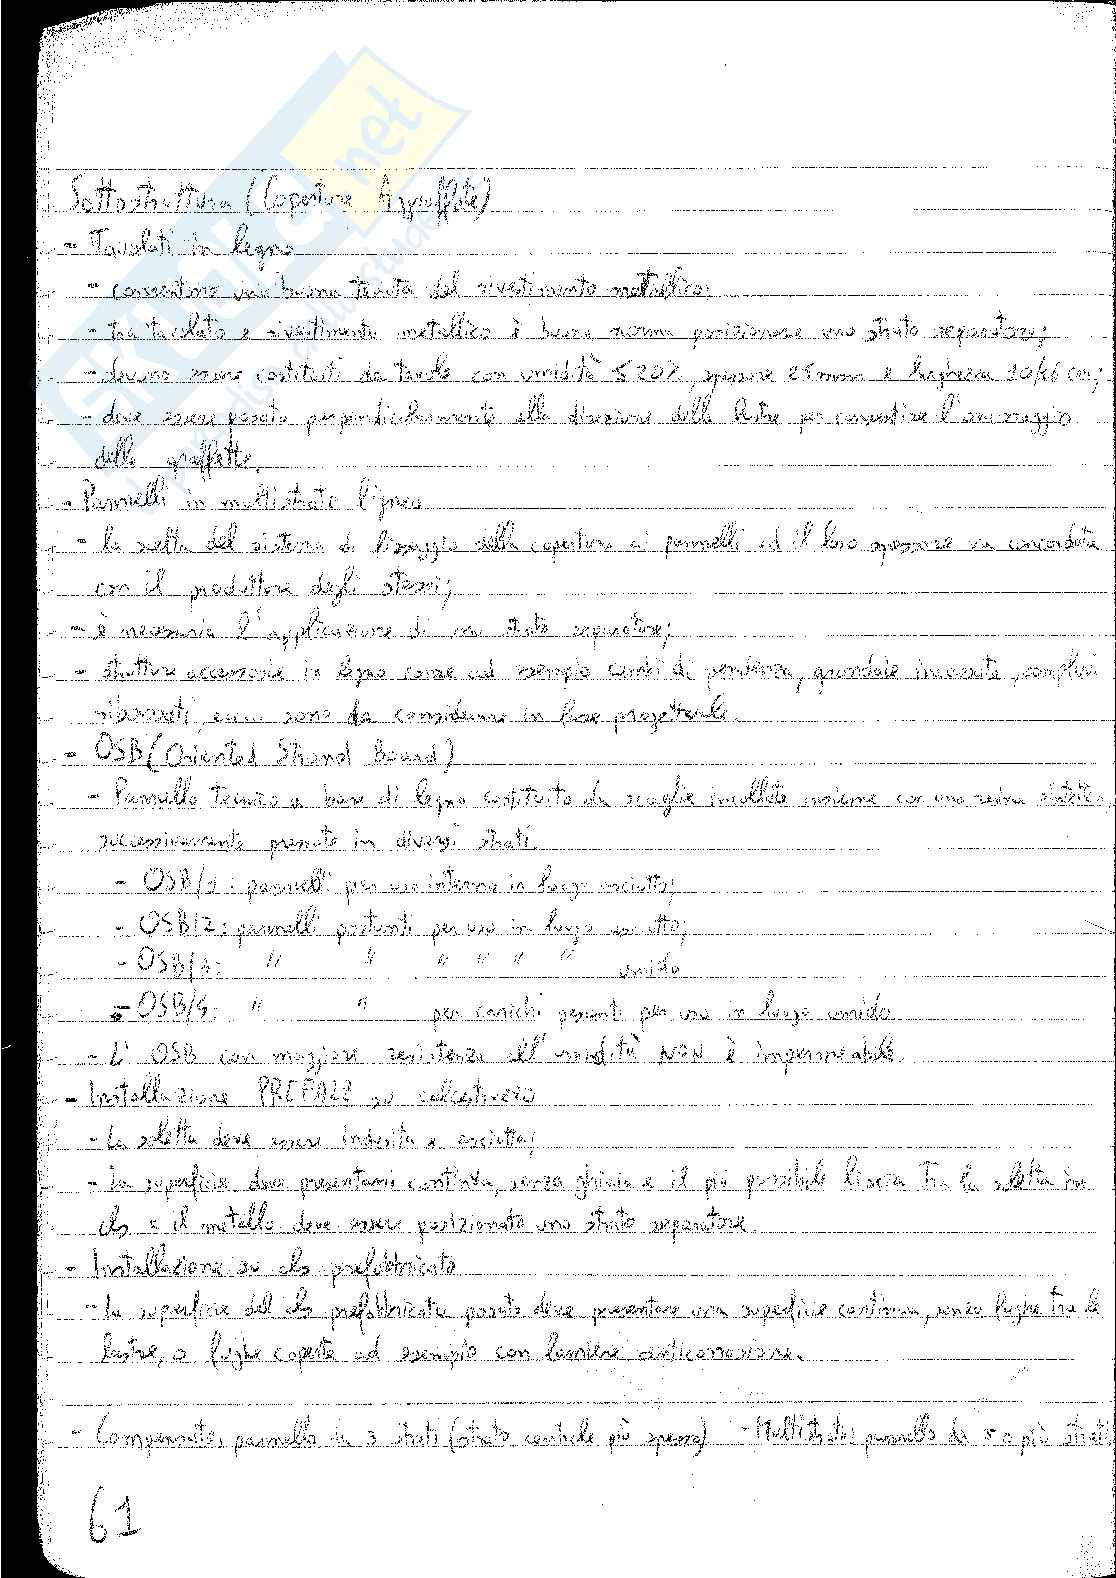 SKUOLA.net
Sottostruttura (Coperture Aggraffate)
- Tavolati in legno
- consentono una buona tenuta del rivestimento metallico;
- tra tavolato e rivestimento metallico è buona norma posizionare uno strato separatore;
- devono essere costituiti da tavole con umidità ≤ 20%, spessore 25mm e larghezza 10/16 cm;
- deve essere posato perpendicolarmente alla direzione delle lastre per consentire l'ancoraggio
delle graffette.
- Pannelli in multistrato ligneo
- la scelta del sistema di fissaggio della copertura ai pannelli ed il loro spessore va concordata
con il produttore degli stessi;
- è necessaria l'applicazione di uno strato separatore;
- strutture accessorie in legno come ad esempio cambi di pendenza, grondaie incassate, compluvi
ribassati, ecc... sono da considerare in fase progettuale.
- OSB (Oriented Strand Board)
- Pannello tecnico a base di legno costituito da scaglie incollate insieme con una resina sintetica,
successivamente pressate in diversi strati.
- OSB/1: pannelli per uso interno in luogo asciutto;
- OSB/2: pannelli portanti per uso in luogo asciutto;
- OSB/3: " " " " " " umido
- OSB/4: " " per carichi pesanti per uso in luogo umido
- L'OSB con maggiore resistenza all'umidità NON è impermeabile.
- Installazione PREFALZ su calcestruzzo
- La soletta deve essere indurita e asciutta;
- La superficie deve presentarsi continua, senza ghiaia e il più possibile liscia. Tra la soletta in
cls e il metallo deve essere posizionato uno strato separatore.
- Installazione su cls prefabbricato
- La superficie del cls prefabbricato posato deve presentare una superficie continua, senza fughe tra le
lastre, o fughe coperte ad esempio con lamiere anticorrosione.
- Compensato: pannello da 3 strati (strato centrale più spesso) - Multistrato: pannello da 5 o più strati
61